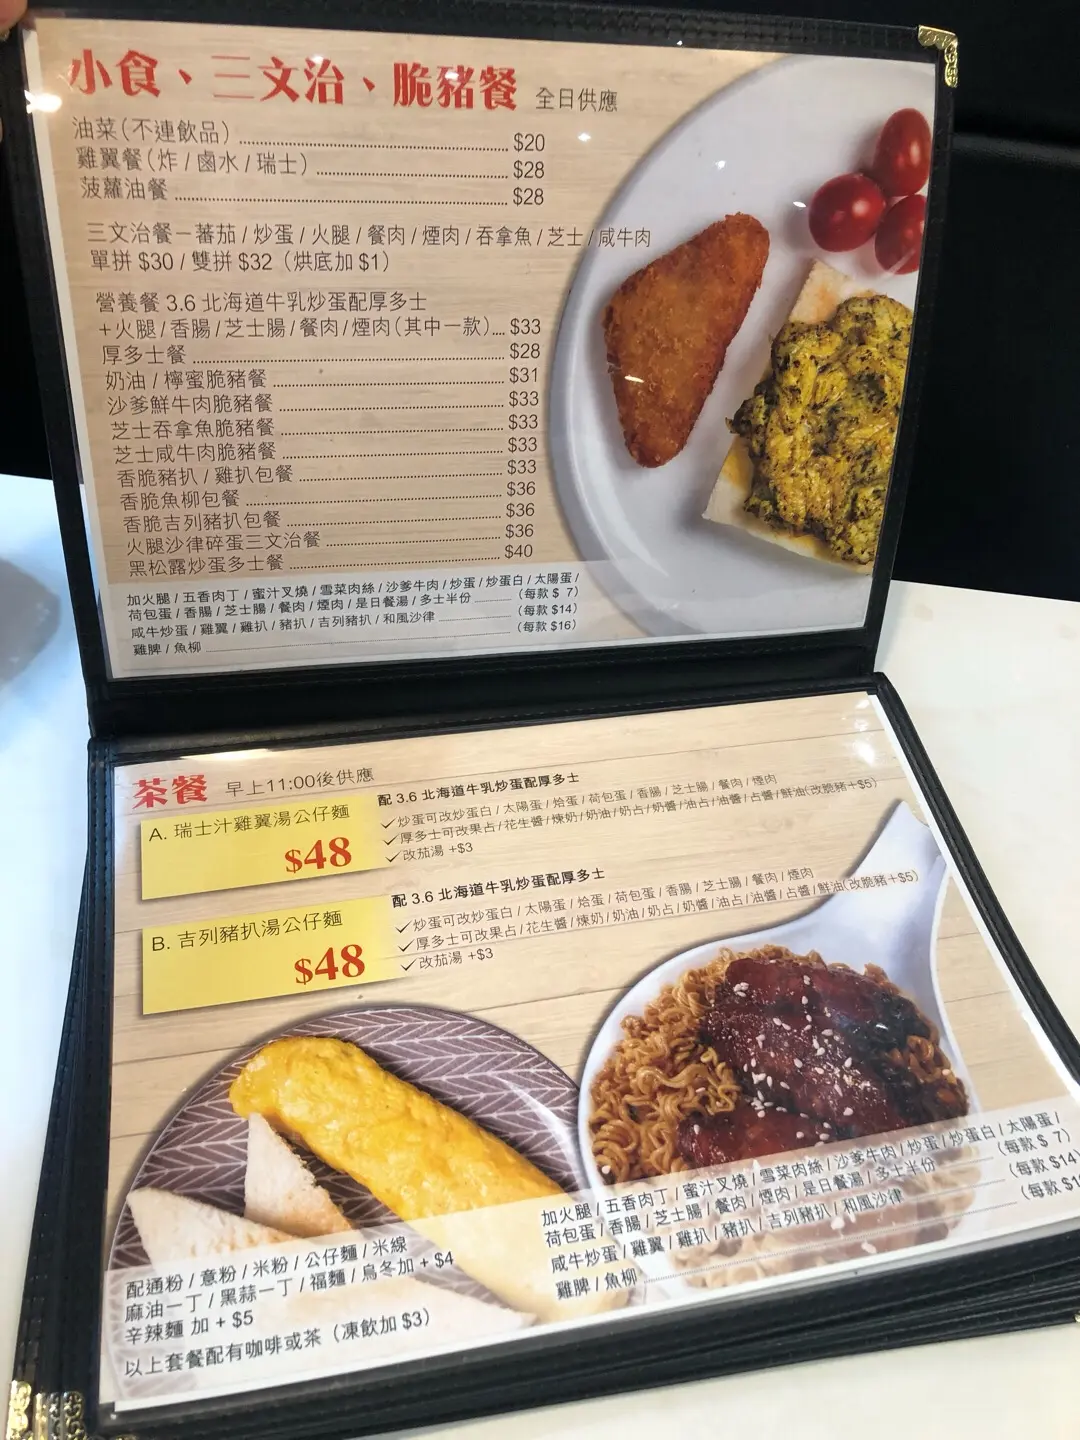 小食、三文治、脆豬餐 全日供應
油菜(不連飲品) $20
雞翼餐(炸/鹵水/瑞士) $28
菠蘿油餐 $28
三文治餐－蕃茄/炒蛋/火腿/餐肉/煙肉/吞拿魚/芝士/咸牛肉
單拼 $30/雙拼 $32（烘底加 $1）
營養餐 3.6 北海道牛乳炒蛋配厚多士
+火腿/香腸/芝士腸/餐肉/煙肉(其中一款) $33
厚多士餐 $28
奶油/檸蜜脆豬餐 $31
沙爹鮮牛肉脆豬餐 $33
芝士吞拿魚脆豬餐 $33
芝士咸牛肉脆豬餐 $33
香脆豬扒/雞扒包餐 $33
香脆魚柳包餐 $36
香脆吉列豬扒包餐 $36
火腿沙律碎蛋三文治餐 $36
黑松露炒蛋多士餐 $40
加火腿/五香肉丁/蜜汁叉燒/雪菜肉絲/沙爹牛肉/炒蛋/炒蛋白/太陽蛋/
荷包蛋/香腸/芝士腸/餐肉/煙肉/是日餐湯/多士半份 (每款 $ 7)
咸牛炒蛋/雞翼/雞扒/豬扒/吉列豬扒/和風沙律 (每款 $14)
雞脾/魚柳 (每款 $16)
茶餐 早上11:00後供應
A. 瑞士汁雞翼湯公仔麵
$48
配 3.6 北海道牛乳炒蛋配厚多士
✓炒蛋可改炒蛋白/太陽蛋/烚蛋/荷包蛋/香腸/芝士腸/餐肉/煙肉
✓厚多士可改果占/花生醬/煉奶/奶油/奶占/奶醬/油占/油醬/占醬/鮮油(改脆豬+$5)
✓改茄湯 +$3
B. 吉列豬扒湯公仔麵
$48
配 3.6 北海道牛乳炒蛋配厚多士
✓炒蛋可改炒蛋白/太陽蛋/烚蛋/荷包蛋/香腸/芝士腸/餐肉/煙肉
✓厚多士可改果占/花生醬/煉奶/奶油/奶占/奶醬/油占/油醬/占醬/鮮油(改脆豬+$5)
✓改茄湯 +$3
配通粉/意粉/米粉/公仔麵/米線
麻油一丁/黑蒜一丁/福麵/烏冬加 + $4
辛辣麵 加 + $5
以上套餐配有咖啡或茶（凍飲加 $3）
加火腿/五香肉丁/蜜汁叉燒/雪菜肉絲/沙爹牛肉/炒蛋/炒蛋白/太陽蛋/
荷包蛋/香腸/芝士腸/餐肉/煙肉/是日餐湯/多士半份 (每款 $ 7)
咸牛炒蛋/雞翼/雞扒/豬扒/吉列豬扒/和風沙律 (每款 $14)
雞脾/魚柳 (每款